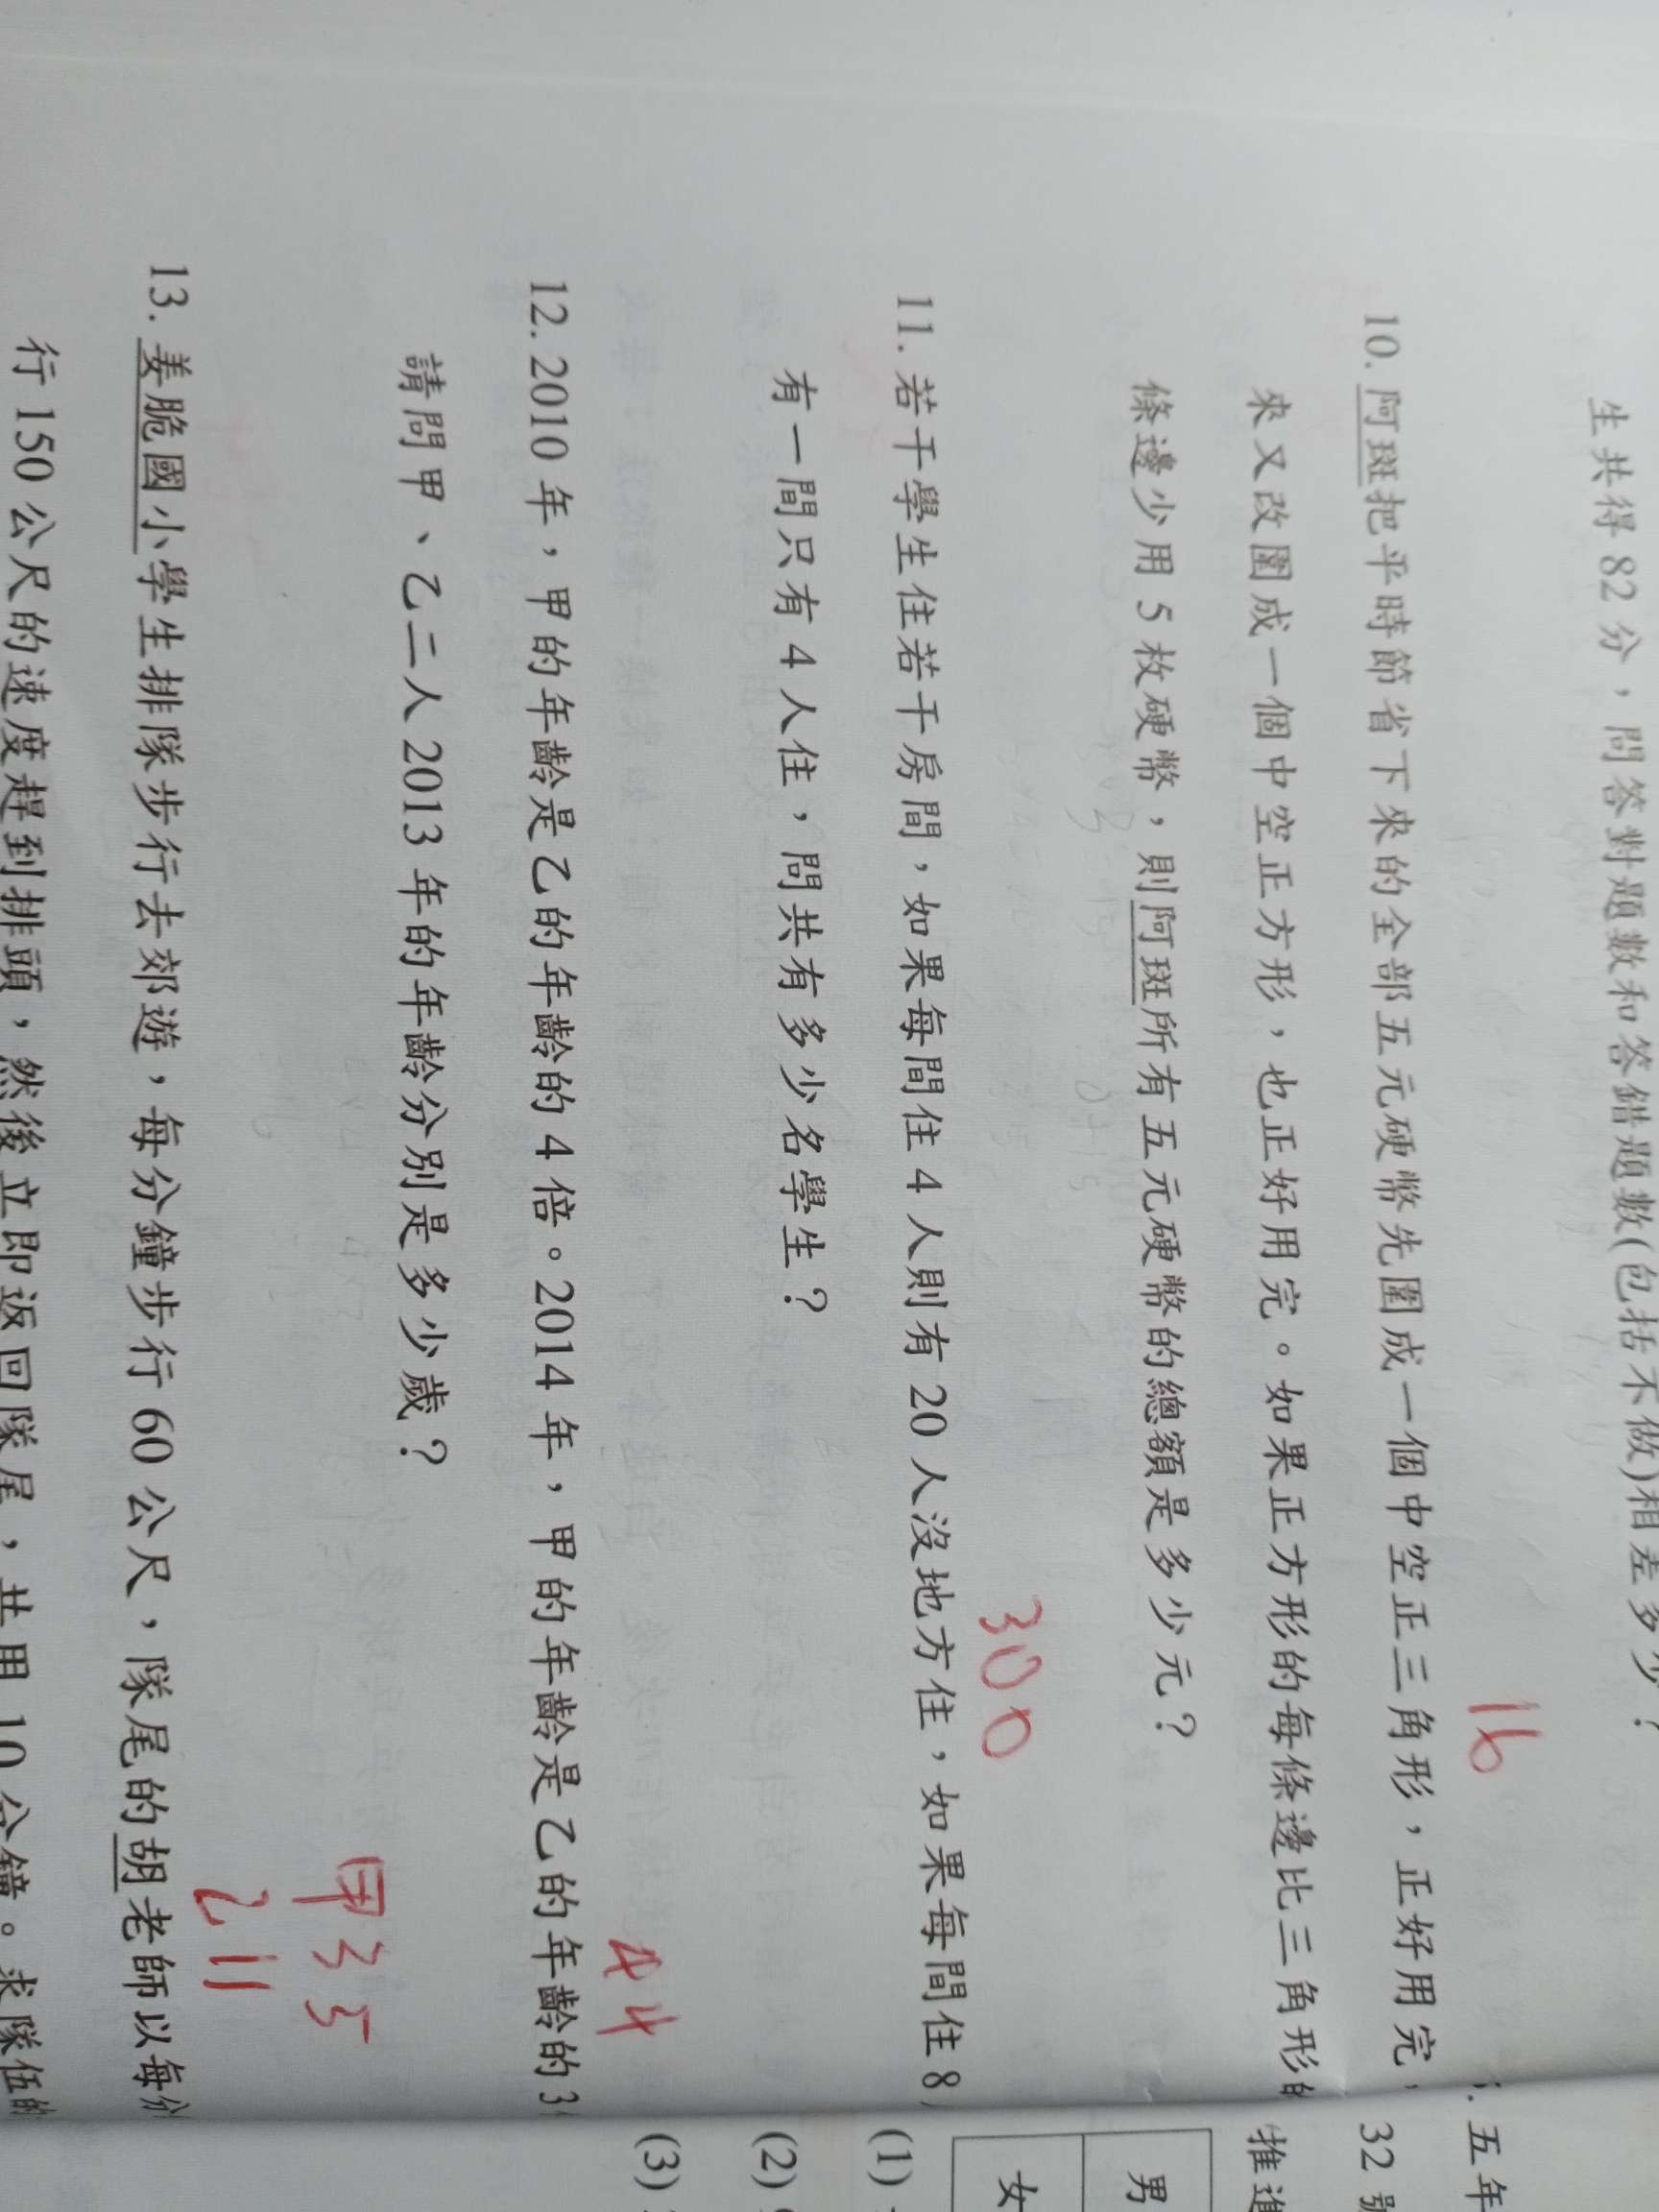 生共得 82 分，問答對題數和答錯題數(包括不做)相差多少？
16
10. 阿斑把平時節省下來的全部五元硬幣先圍成一個中空正三角形，正好用完，
來又改圍成一個中空正方形，也正好用完。如果正方形的每條邊比三角形的
條邊少用 5 枚硬幣，則阿斑所有五元硬幣的總額是多少元？
300
11. 若干學生住若干房間，如果每間住 4 人則有 20 人沒地方住，如果每間住 8
有一間只有 4 人住，問共有多少名學生？
44
12. 2010 年，甲的年齡是乙的年齡的 4 倍。2014 年，甲的年齡是乙的年齡的 3
請問甲、乙二人 2013 年的年齡分別是多少歲？
甲 35
乙 11
13. 姜脆國小學生排隊步行去郊遊，每分鐘步行 60 公尺，隊尾的胡老師以每分
行 150 公尺的速度趕到排頭，然後立即返回隊尾，共用 10 分鐘。求隊伍的
五年
32 號
推進
男
女
(1)
(2)
(3)